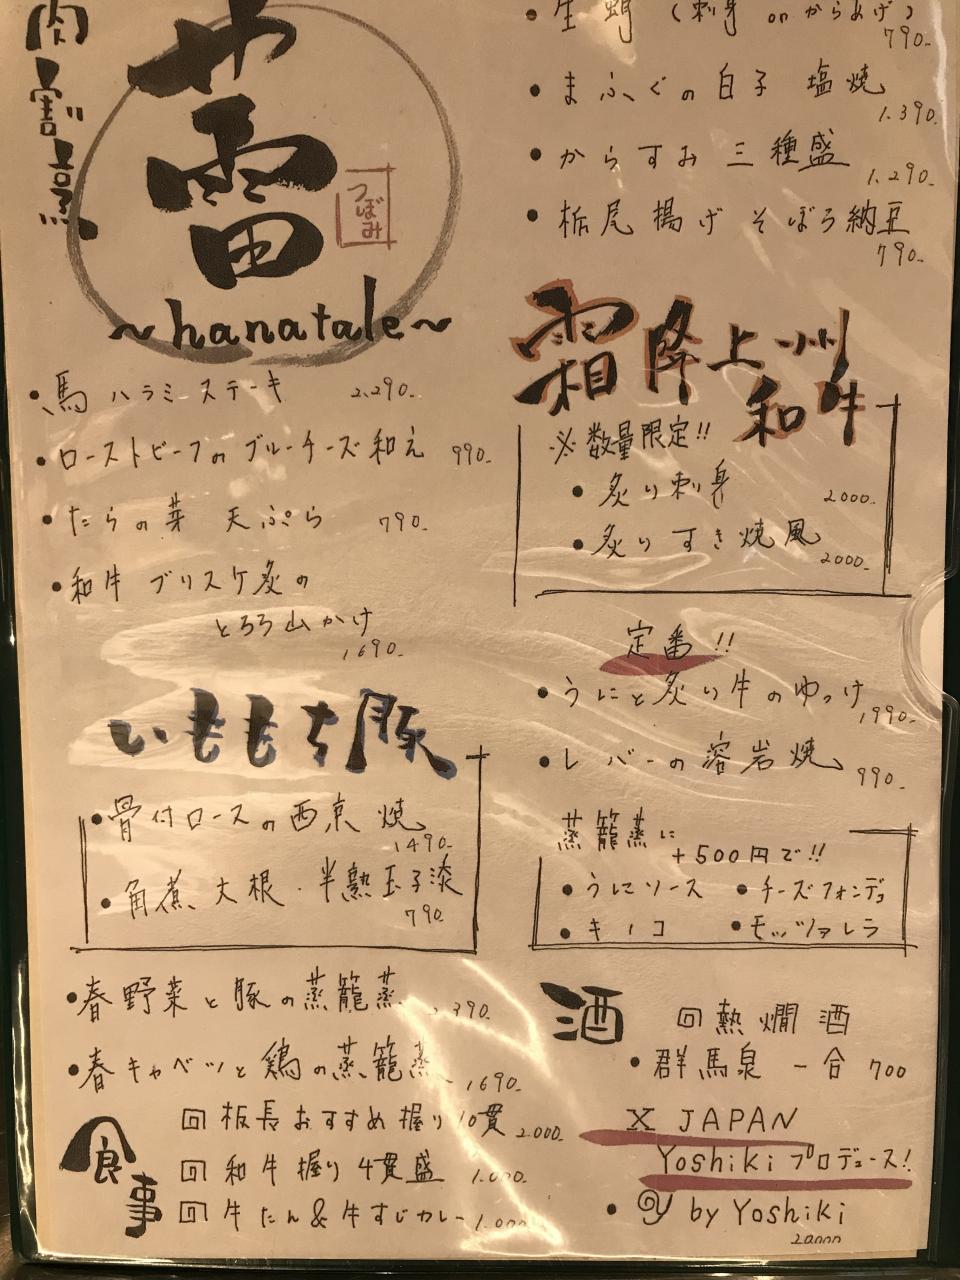 肉割烹
蕾
つぼみ
~hanatale~
・馬ハラミステーキ 2,290-
・ローストビーフのブルーチーズ和え 990-
・たらの芽 天ぷら 790-
・和牛ブリスケ炙の
とろろ山かけ
1,690-
いももち豚
・骨付ロースの西京焼
1490-
・角煮大根・半熟玉子添
790-
・春野菜と豚の蒸籠蒸 1,390-
・春キャベツと鶏の蒸籠蒸 1,690-
食事
回 板長おすすめ握り10貫 2,000-
回 和牛握り4貫盛 1,000-
回 牛たん&牛すじカレー 1,000-
・生蛸(刺身 or からあげ)
790-
・まふぐの白子 塩焼
1,390-
・からすみ三種盛
1,290-
・栃尾揚げ そぼろ納豆
790-
霜降上州
和牛
※数量限定!!
・炙り刺身 2000-
・炙りすき焼風 2000-
定番!!
・うにと炙り牛のゆっけ
1,990-
・レバーの溶岩焼 990-
蒸籠蒸に
+500円で!!
・うにソース ・チーズフォンデュ
・キノコ ・モッツァレラ
酒 回熱燗酒
・群馬泉 一合 700
X JAPAN
Yoshikiプロデュース!
・y by Yoshiki
20000